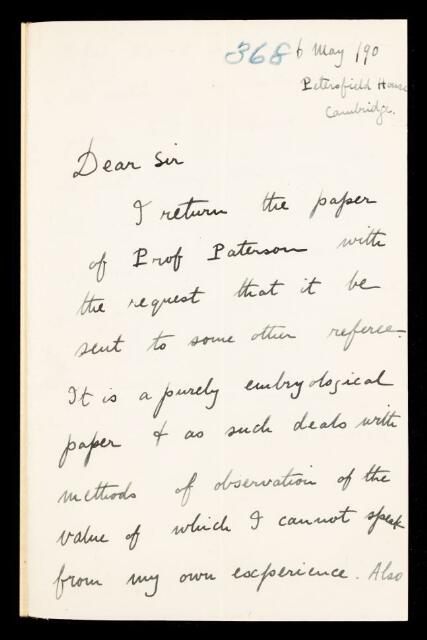 368 6 May /90
Petersfield House
Cambridge.
Dear Sir
I return the paper
of Prof Paterson with
the request that it be
sent to some other referee.
It is a purely embryological
paper & as such deals with
methods of observation of the
value of which I cannot speak
from my own experience. Also